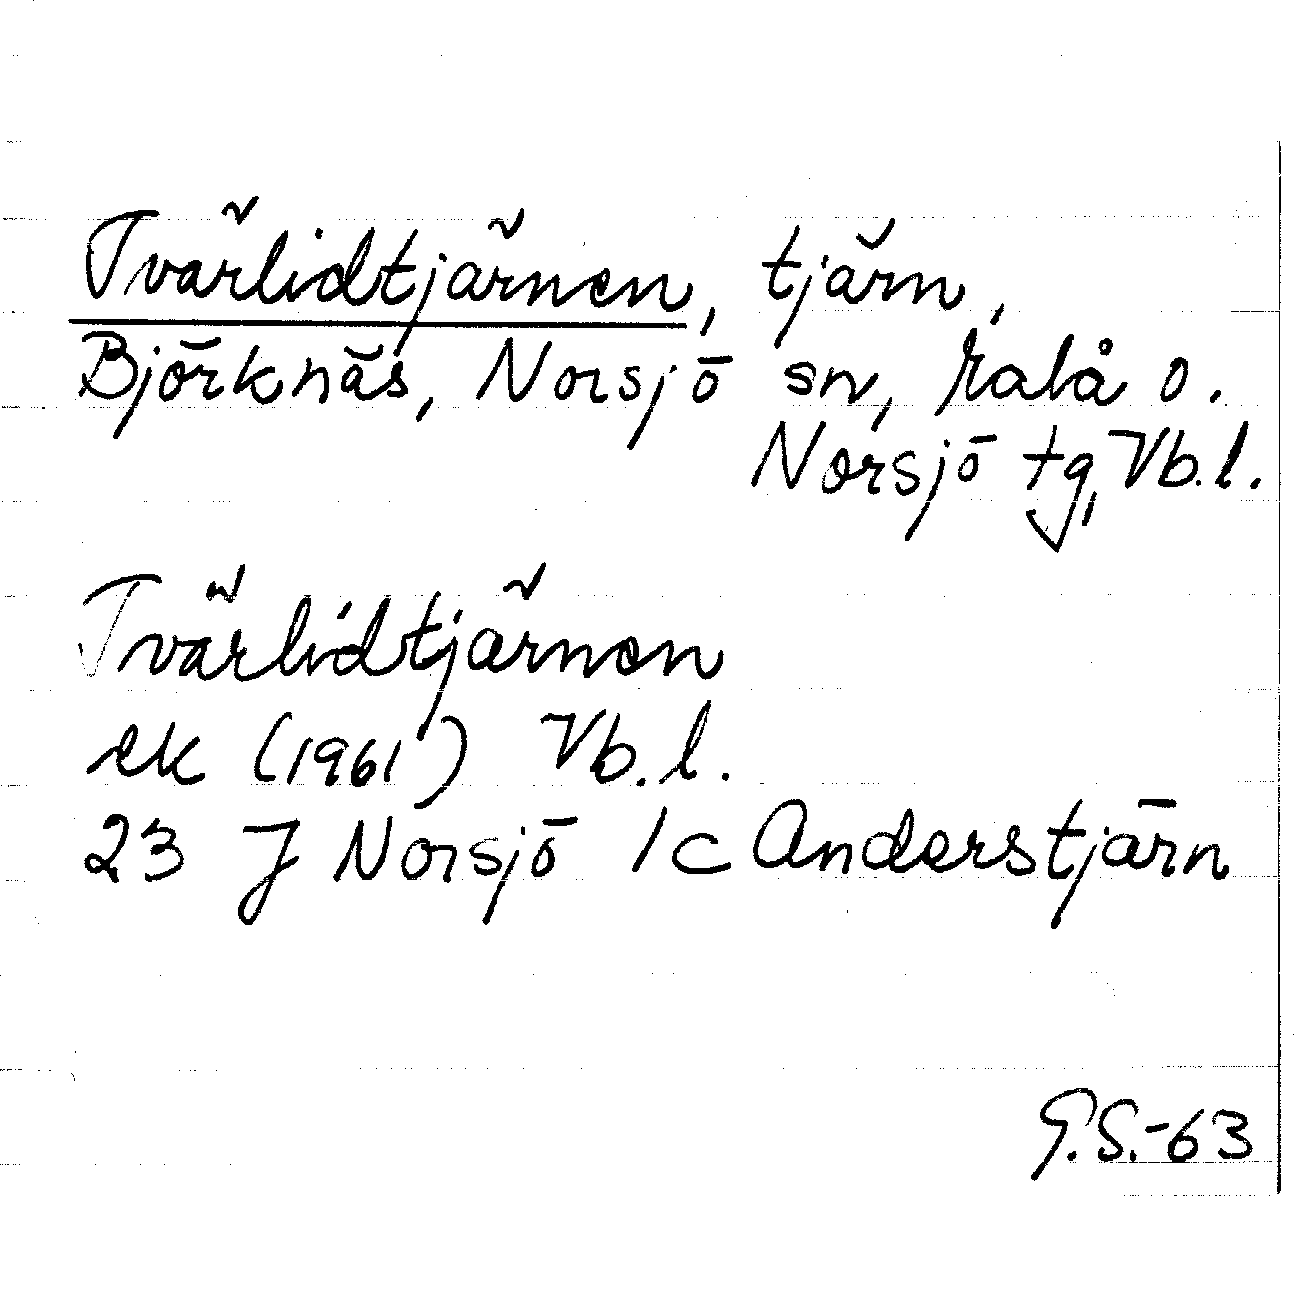 Tvärlidtjärnen, tjärn,
Björknäs, Norsjö sn, Malå o.
Norsjö tg, Vb.l.
Tvärlidtjärnen
ek (1961) Vb.l.
23 J Norsjö 1c Anderstjärn
G.S.-63